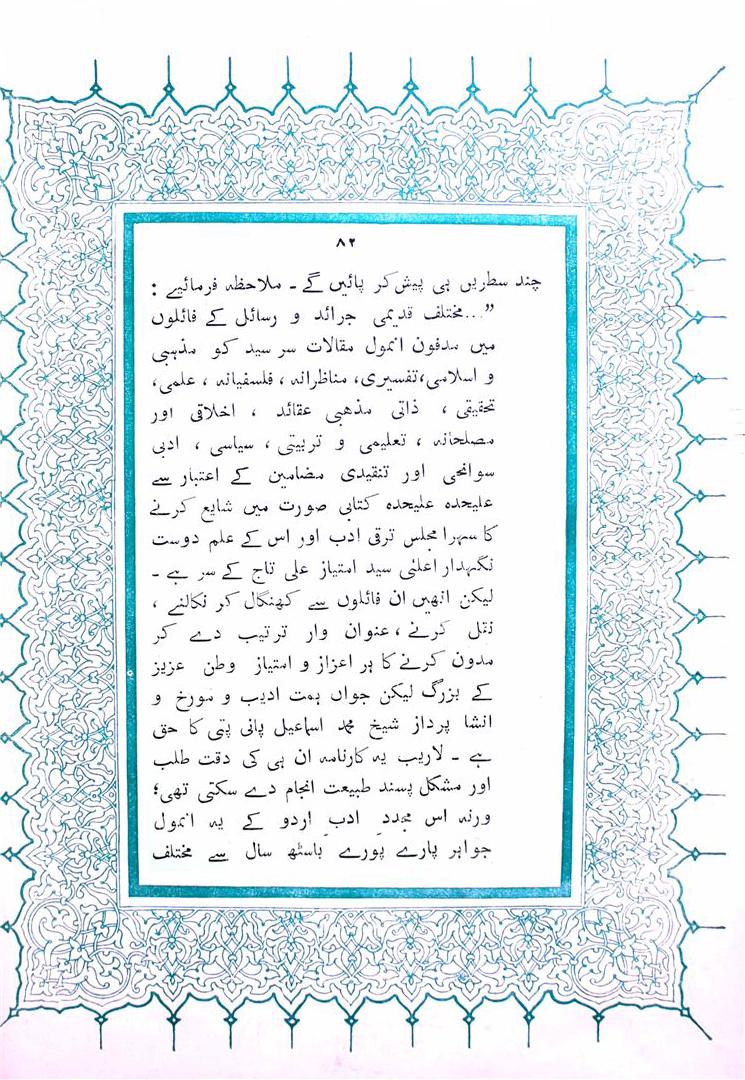 ۸۲
چند سطریں ہی پیش کر پائیں گے ۔ ملاحظہ فرمائیے :
”...مختلف قدیمی جرائد و رسائل کے فائلوں
میں مدفون انمول مقالات سر سید کو مذہبی
و اسلامی،تفسیری، مناظرانہ ، فلسفیانہ ، علمی،
تحقیقی ، ذاتی مذہبی عقائد ، اخلاق اور
مصلحانہ ، تعلیمی و تربیتی ، سیاسی ، ادبی
سوانحی اور تنقیدی مضامین کے اعتبار سے
علیحدہ علیحدہ کتابی صورت میں شایع کرنے
کا سہرا مجلس ترقی ادب اور اس کے علم دوست
نگہدار اعلٰی سید امتیاز علی تاج کے سر ہے ۔
لیکن انھیں ان فائلوں سے کھنگال کر نکالنے ،
نقل کرنے ، عنوان وار ترتیب دے کر
مدون کرنے کا ہر اعزاز و امتیاز وطن عزیز
کے بزرگ لیکن جواں ہمت ادیب و مورخ و
انشا پرداز شیخ محمد اسماعیل پانی پتی کا حق
ہے ۔ لاریب یہ کارنامہ ان ہی کی دقت طلب
اور مشکل پسند طبیعت انجام دے سکتی تھی؛
ورنہ اس مجددِ ادبِ اردو کے یہ انمول
جواہر پارے پورے باسٹھ سال سے مختلف